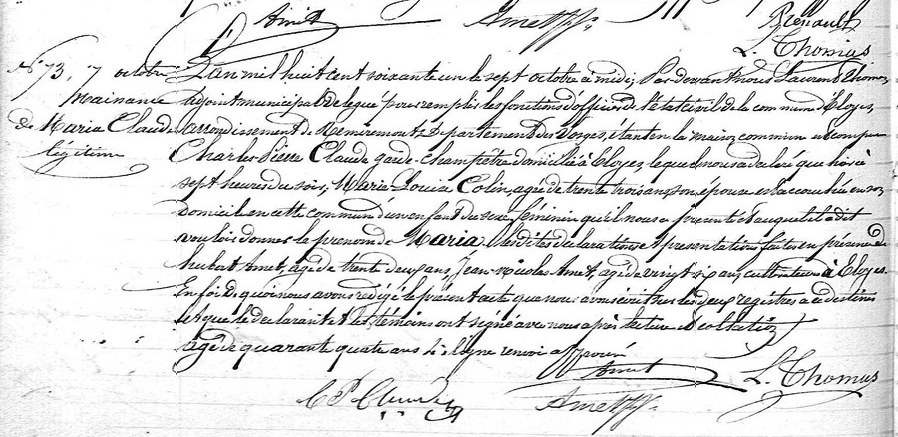 Amet Amet Renault
L. Thomas
N° 73, 7 octobre
naissance
de Maria Claude
légitime
L'an mil huit cent soixante un le sept octobre à midi, Par devant nous Laurent Thomas
adjoint municipal délégué pour remplir les fonctions d'officier de l'Etat civil de la commune d'Eloyes,
arrondissement de Remiremont Département des Vosges, étant en la maison commune est comparu
Charles Pierre Claude garde-champêtre domicilié à Eloyes, lequel nous a déclaré que hier à
sept heures du soir, Maria Louise Colin, agée de trente trois ans, son épouse est accouchée en son
domicile en cette commune d'un enfant du sexe féminin qu'il nous a présenté et auquel il a dit
vouloir donner le prénom de Maria. Lesdites déclaration et présentation faites en présence de
hubert Amet, agé de trente deux ans, Jean-nicolas Amet, agé de vingt six ans, cultivateurs à Eloyes.
En foi de quoi nous avons rédigé le présent acte que nous avons écrit sur les deux registres a ce destinés
et que le déclarant et les témoins ont signé avec nous après lecture et collation
agé de quarante quatre ans ligne renvoi approuvé
Amet L. Thomas
C P Claude Amet